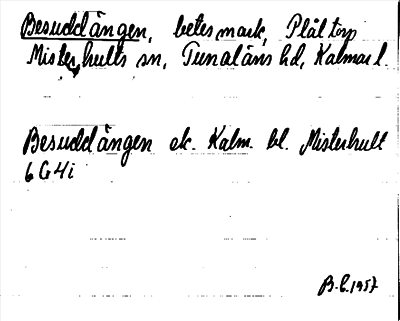 Besuddängen, betesmark, Plåltorp
Misterhults sn, Tunaläns hd, Kalmar l.
Besuddängen ek. Kalm. bl. Misterhult
6G4i
B.L. 1957